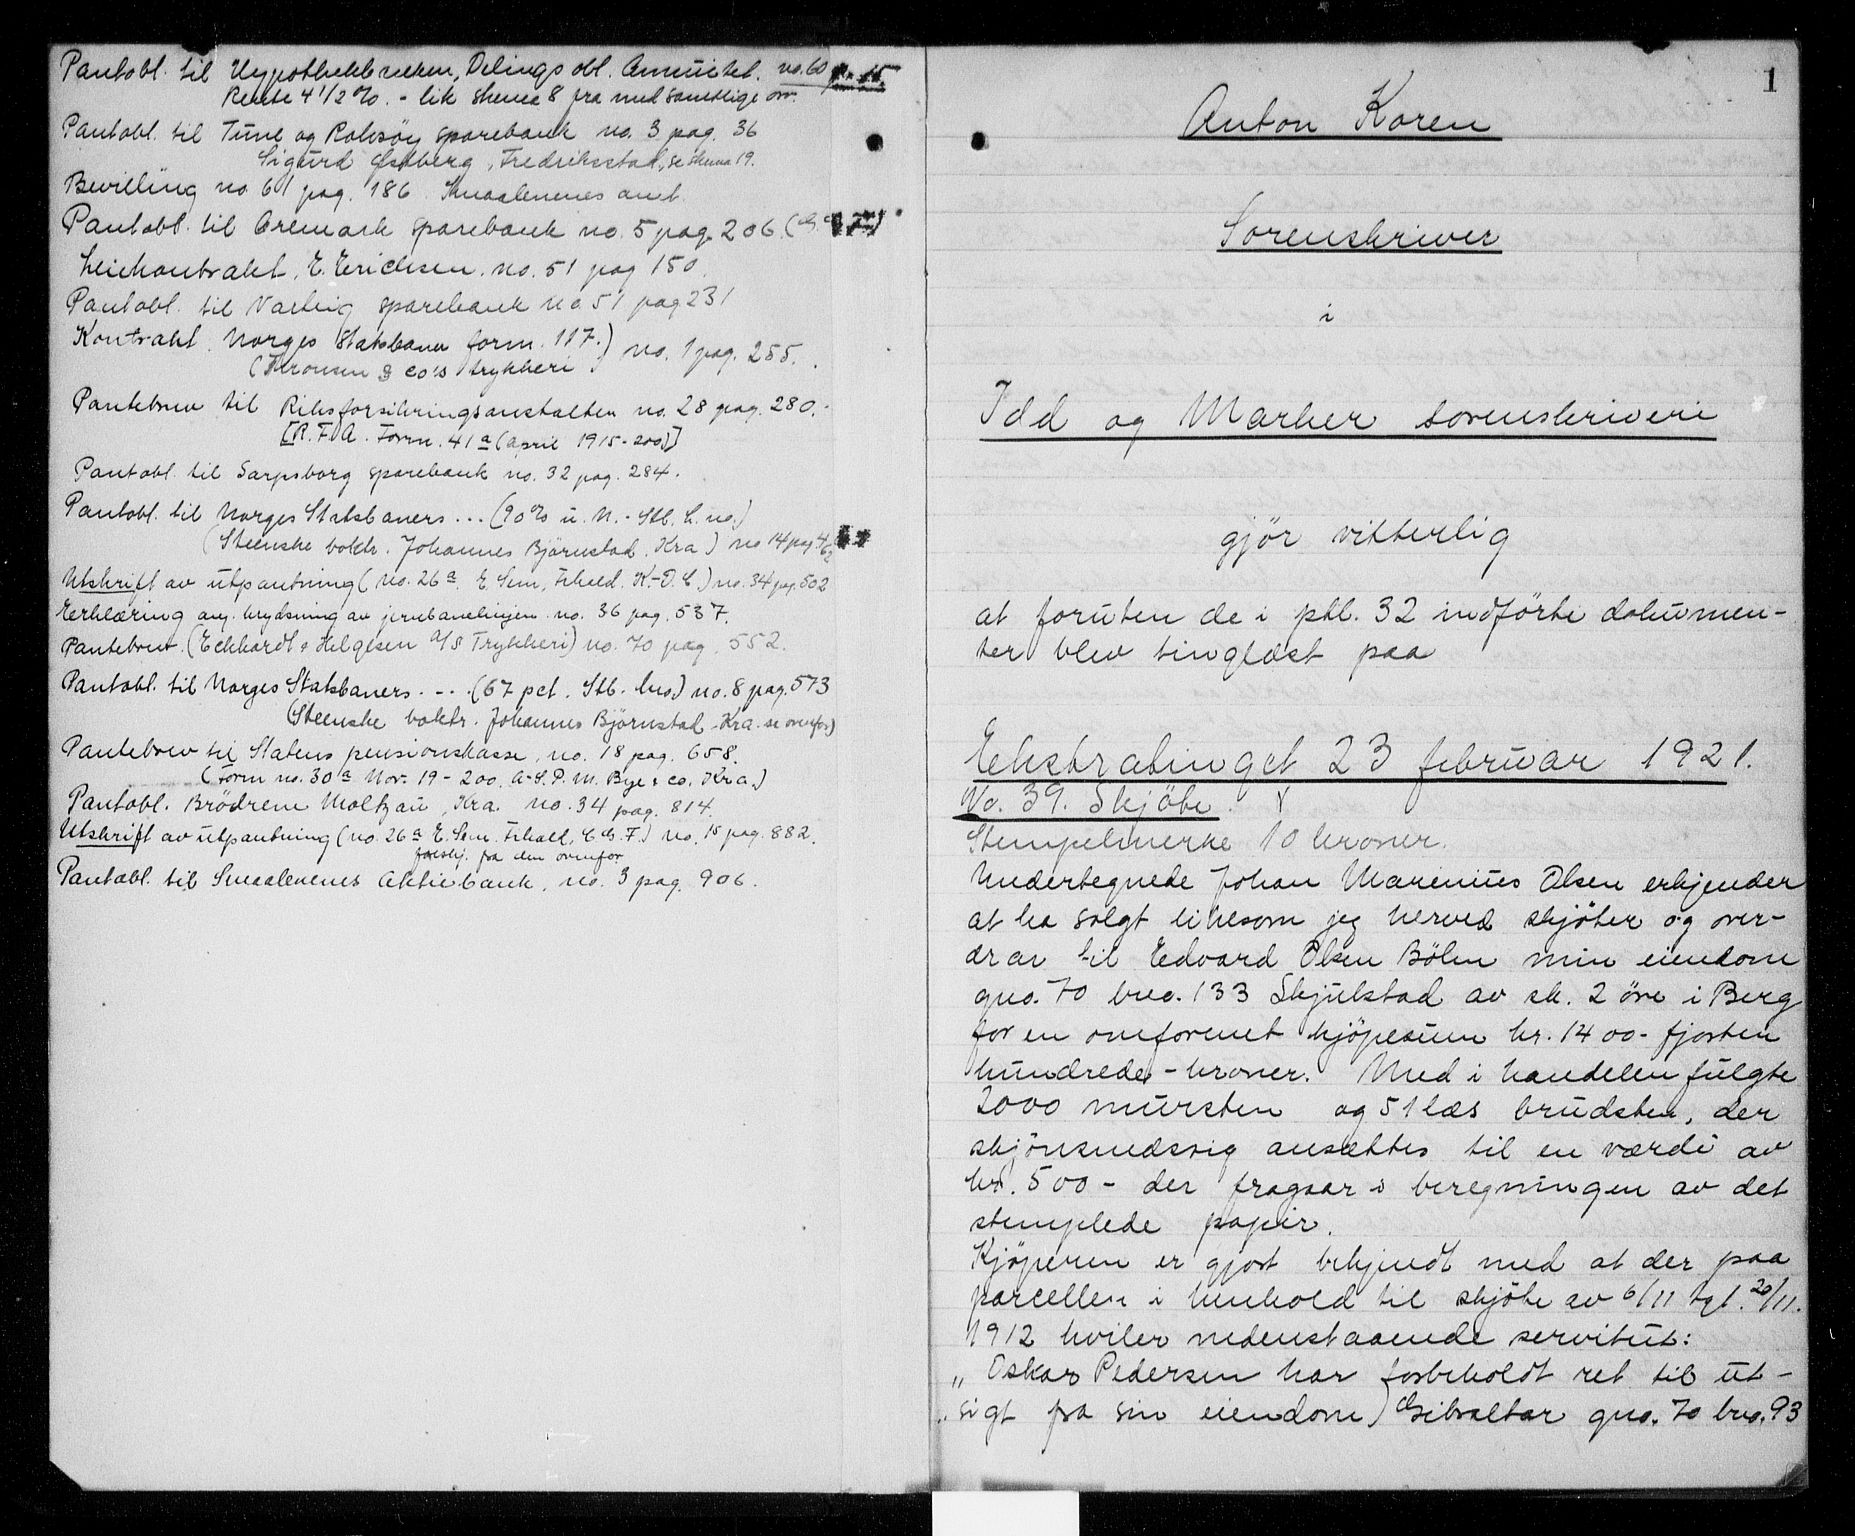 Pantobl. til Hypothekbanken, Delings obl. Annuitet. no. 60 pag. 15.
Rente 4 1/2 %. - lik skema 8 fra med samtlige
Pantobl. til Tune og Rolvsöy sparebank no. 3 pag. 36
Sigurd Østberg, Fredriksstad, se skema 19.
Bevilling no 61 pag. 186 Smaalenenes amt.
Pantobl. til Aremark sparebank no. 5 pag. 206.
Leiekontrakt, E. Erichsen. no. 51 pag 150.
Pantobl. til Varteig sparebank no. 51 pag 231
Kontrakt. Norges Statsbaner form. 117.) no. 1 pag. 255.
& co's trykkeri
Pantebrev til Riksforsikringsanstalten no. 28 pag. 280.-
[R.F.A. Form. 41 a (april 1915-200)]
Pantobl. til Sarpsborg sparebank no. 32 pag. 284.
Pantobl. til Norges Statsbaners ... (90 % u. N. - Stb. L. no.)
(Steenske boktr. Johannes Björnstad. Kra) no 14 pag 462
Utskrift av utpantning (no. 26 a E. Sem, Fr.hald. K.-D. C.) no. 34 pag. 502
Erklæring ang. krydsning av jernbanelinjen no. 36 pag. 537.
Pantebrev (Eckhardt & Helgesen A/S Trykkeri) no. 70 pag. 552.
Pantobl. til Norges Statsbaners. - .. (67 pct. Stb. lno.) no. 8 pag. 573
(Steenske boktr. Johannes Björnstad - Kra. se ovenfor)
Pantebrev til Statens pensionskasse, no. 18 pag. 658.
(Form no. 30 a Nov. 19 - 200. A-S. P. M. Bye & co. Kra.)
Pantobl. Brödrene Moltzau, Kra. no. 34 pag. 814.
Utskrift av utpantning (no. 26 a E. Sem. Fr.hald, C. G. F.) no. 15 pag. 882.
forskj. fra den ovenfor
Pantobl. til Smaalenenes Aktiebank, no. 3 pag. 906.
1
Anton Koren
Sorenskriver
i
Idd og Marker sorenskriveri
gjör vitterlig
at foruten de i pkb. 32 indförte dokumen-
ter blev tinglæst paa
Ekstratinget 23 februar 1921.
No. 39. Skjöte.
Stempelmerke 10 kroner.
Undertegnede Johan Marenius Olsen erkjender
at ha solgt likesom jeg herved skjöter og over-
drar til Edvard Olsen Bölen min eiendom
gno. 70 bno. 133 Skjulstad av sk. 2 öre i Berg
for en omforenet kjöpesum kr. 1400 - fjorten
hundrede - kroner. Med i handelen fulgte
2000 mursten og 51 læs brudsten, der
skjönsmæssig ansættes til en værdi av
kr. 500 - der fragaar i beregningen av det
stemplede papir.
Kjöperen er gjort bekjendt med at der paa
parcellen i henhold til skjöte av 6/11 tgl. 20/11.
1912 hviler nedenstaaende servitut:
„ Oskar Pedersen har forbeholdt ret til ut-
„ sigt fra sin eiendom) Gibraltar gno. 70 bno. 93